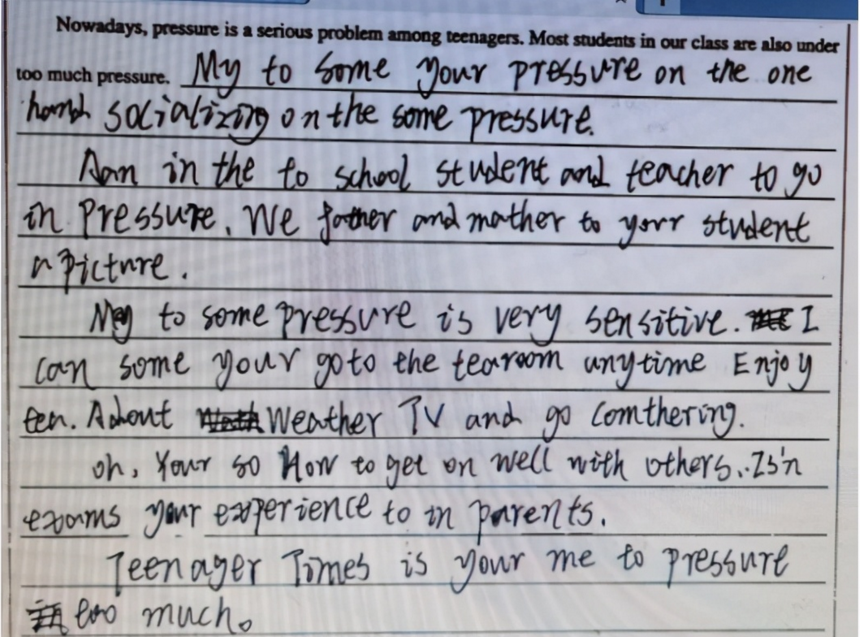 Nowadays, pressure is a serious problem among teenagers. Most students in our class are also under
too much pressure. My to some your pressure on the one
hand socializing on the some pressure.
Aam in the to school student and teacher to go
in pressure. We father and mather to yorr student
a picture.
May to some pressure is very sensitive. I
can some your goto the tearoom anytime Enjoy
Adout Weather TV and go Comthering.
oh, Your so How to get on well with others. Is'n
exams your experience to in parents.
Teenager Times is your me to pressure
too much。